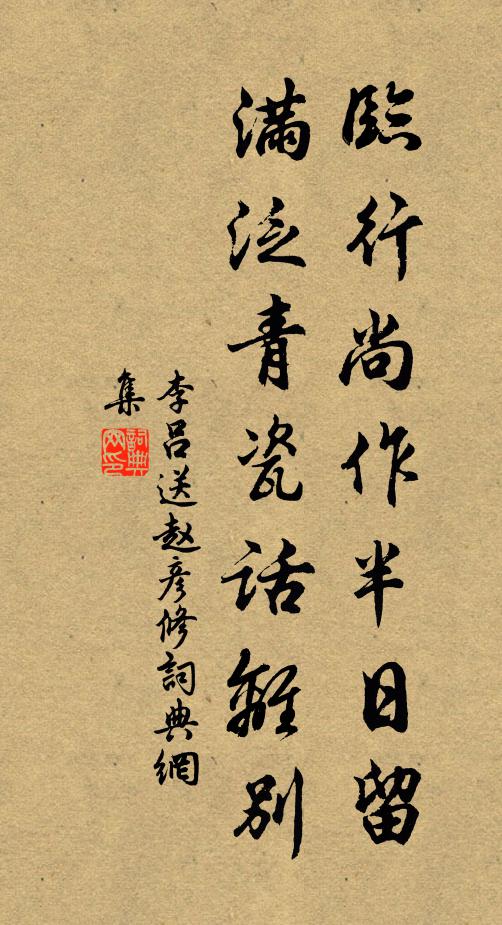 臨行尚作半日留
滿泛青瓷話離別
李呂送赵彥修詞典網
集
詞典
网印